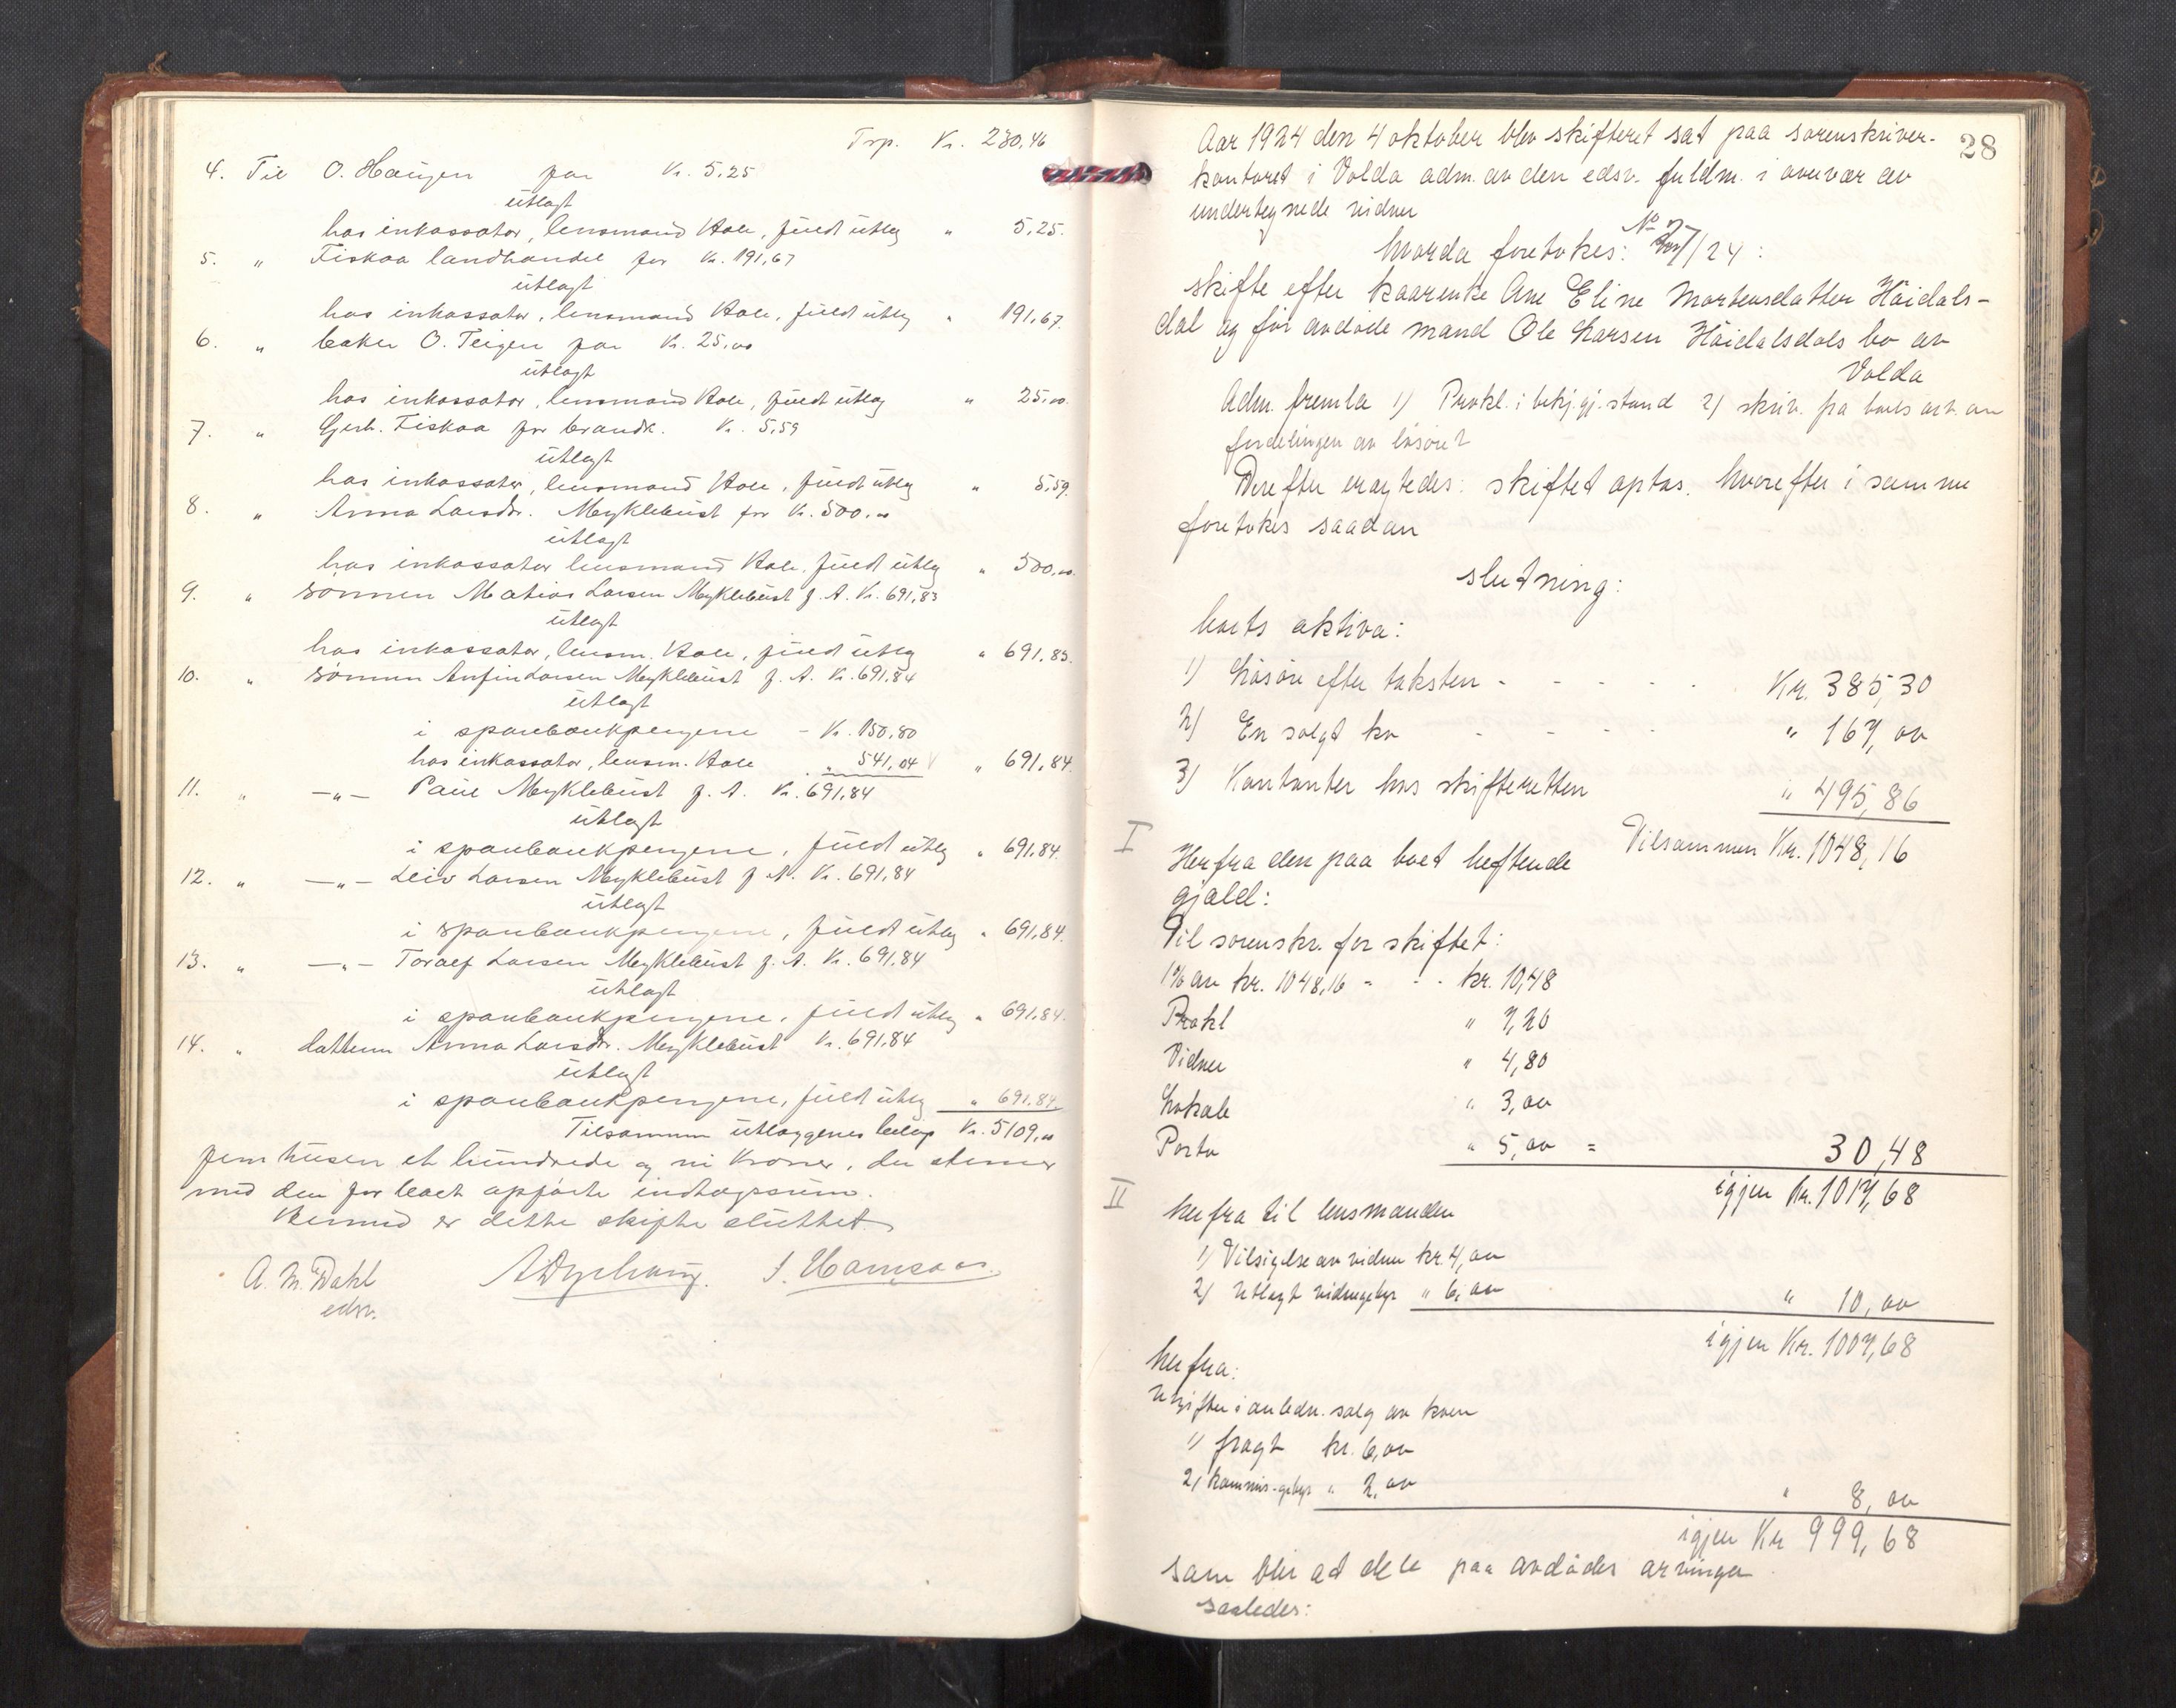 Trp. Kr. 230,46
4. Til O. Haugen for Kr. 5,25
utlagt
hos inkassator, lensmand Hole, fuldt utlæg " 5,25.
5. " Fiskaa landhandel for Kr. 191,67
utlagt
hos inkassator, lensmand Hole, fuldt utlæg " 191,67.
6. " baker O. Teigen for Kr. 25,00
utlagt
hos inkassator, lensmand Hole, fuldt utlæg " 25,00.
7. " Gjert. Fiskaa for brandk. Kr. 5,59
utlagt
hos inkassator, lensmand Hole, fuldt utlæg " 5,59.
8. " Anna Larsdr. Myklebust for Kr. 500,00
utlagt
hos inkassator lensmand Hole, fuldt utlæg " 500,00.
9. " sønnen Matias Larsen Myklebust f. A. Kr. 691,83
utlagt
hos inkassator, lensm. Hole, fuldt utlæg " 691,83.
10. " sønnen Anfin Larsen Myklebust f. A. Kr. 691,84
utlagt
i sparebankpengene - Kr. 150,80
hos inkassator, lensm. Hole " 541,04 " 691,84.
11. " —"— Paul Myklebust f. A. Kr. 691,84
utlagt
i sparebankpengene, fuldt utlæg " 691,84.
12. " —"— Leiv Larsen Myklebust f. A. Kr. 691,84
utlagt
i sparebankpengene, fuldt utlæg " 691,84.
13. " —"— Toralf Larsen Myklebust f. A. Kr. 691,84
utlagt
i sparebankpengene, fuldt utlæg " 691,84.
14. " datteren Anna Larsdr. Myklebust Kr. 691,84
utlagt
i sparebankpengene, fuldt utlæg " 691,84
Tilsammen utlæggenes beløp Kr. 5109,00
fem tusen et hundrede og ni kroner, der stemer
med den for boet opførte indtægssum.
Hermed er dette skifte sluttet.
A. M. Dahl
edsv.
28
Aar 1924 den 4 oktober blev skifteret sat paa sorenskriver-
kontoret i Volda adm. av den edsv. fuldm. i overvær av
undertegnede vidner
No 7
hvorda foretokes: /24:
skifte efter kaarenke Ane Eline Mortensdatter Høidals-
dal og før avdøde mand Ole Larsen Høidalsdals bo av
Volda
Adm. fremla 1) Prokl. i bekj.gj. stand 2) skriv. fra boets arv. om
fordelingen av løsøret
Derefter eragtedes: skiftet optas. hvorefter i samme
foretokes saadan
slutning:
boets aktiva:
1) Løsøre efter taksten - - - - - Kr. 385,30
2) En solgt ko - - - - " 167,00
3) Kontanter hos skifteretten " 495,86
I Tilsammen Kr. 1048,16
Herfra den paa boet heftende
gjæld:
Til sorenskr. for skiftet:
1% av kr. 1048,16 - - - kr. 10,48
Prokl " 7,20
Vidner " 4,80
Lokale " 3,00
Porto " 5,00 = 30,48
igjen Kr. 1017,68
II herfra til lensmanden
1) Tilsigelse av vidner kr. 4,00
2) Utlagt vidnegebyr " 6,00 " 10,00
igjen Kr. 1007,68
herfra:
Utgifter i anledn. salg av koen
1) fragt kr. 6,00
2) kommis-gebyr " 2,00 " 8,00
igjen Kr 999,68
som blir at dele paa avdødes arvinger
saaledes: